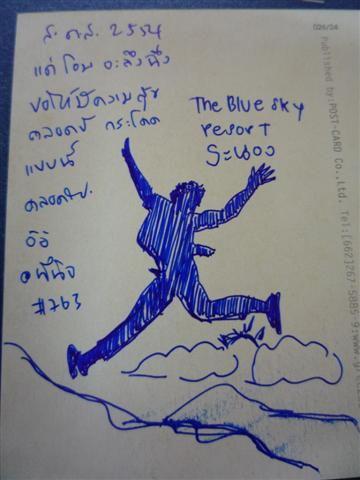 ส.ค.ส. 2554
แด่ โอม อะลึ่งนึ่ง
ขอให้มีความสุข
ตลอดปี กระโดด
แบบนี้
ตลอดไป.
อิอิ
พี่นิจ
#763
The Blue sky
resort
ระนอง
026/24
Published by:POST-CARD Co.,Ltd. Tel:(662)267-5885-9